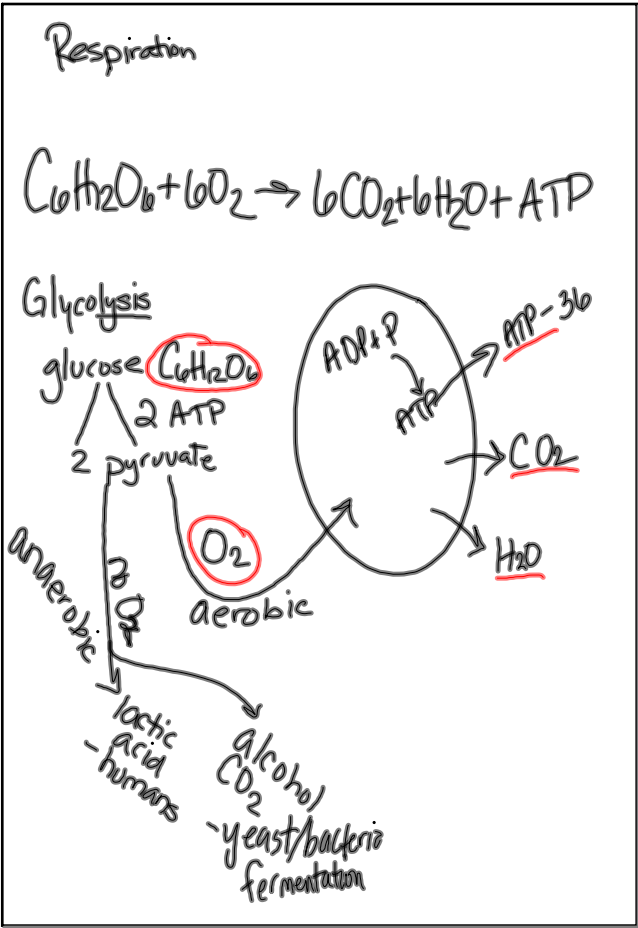 Respiration
C6H12O6+6O2→6CO2+6H2O+ATP
Glycolysis
glucose C6H12O6
2 ATP
2 pyruvate
anaerobic
O2
aerobic
ADP+P
ATP
ATP-36
CO2
H2O
lactic
acid
-humans
alcohol
CO2
-yeast/bacteria
fermentation